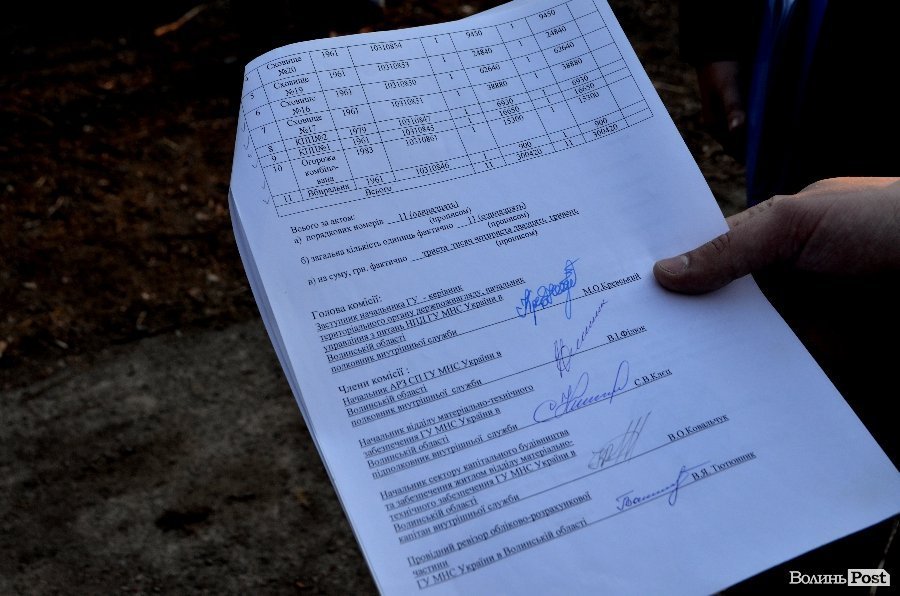 5 Сховище №20 1961 10310854 1 9450 1 9450
6 Сховище №19 1961 10310853 1 24840 1 24840
7 Сховище №16 1961 10310850 1 62640 1 62640
Сховище №17 1961 10310851 1 38880 1 38880
8 КПП№2 1979 1 6930 6930
9 КПП№1 1961 10310845 16650 16650
10 Огорожа комбіно-вана 1983 1 15300 1 15300
11 Вбиральня 1961 10310846 1 900 1 900
Всього 11 300420 11 300420
Всього за актом:
а) порядкових номерів 11 (одинадцять)
(прописом)
б) загальна кількість одиниць фактично 11 (одинадцять)
(прописом)
в) на суму, грн. фактично триста тисяч чотириста двадцять гривень
(прописом)
Голова комісії:
Заступник начальника ГУ - керівник
територіального органу держпожнагляду, начальник
управління з питань НПД ГУ МНС України в
Волинській області
полковник внутрішньої служби
Члени комісії :
Начальник АРЗ СП ГУ МНС України в
Волинській області
полковник внутрішньої служби В.І.Філюк
Начальник відділу матеріально-технічного
забезпечення ГУ МНС України в
Волинській області
підполковник внутрішньої служби С.В.Клец
Начальник сектору капітального будівництва
та забезпечення житлом відділу матеріально-
технічного забезпечення ГУ МНС України в
Волинській області
капітан внутрішньої служби В.О.Ковальчук
Провідний ревізор обліково-розрахункової
частини
ГУ МНС України в Волинській області В.Я. Тютюнник
ВолиньPost